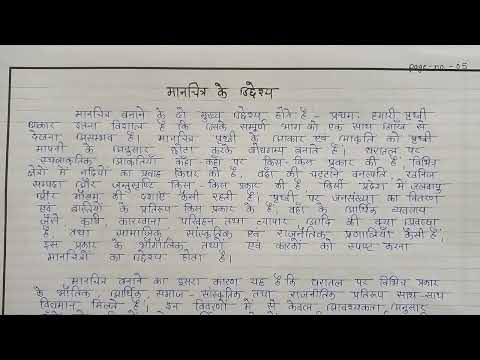 page-no.-05
मानचित्र के उद्देश्य
मानचित्र बनाने के दो मुख्य उद्देश्य होते हैं - प्रथम, हमारी पृथ्वी
आकार इतना विशाल है कि उसके सम्पूर्ण भाग को एक साथ दृष्टि से
देखना असम्भव है। मानचित्र पृथ्वी के आकार एवं आकृति को पृथ्वी
मापनी के अनुसार छोटा करके बोधगम्य बनाते हैं। धरातल पर
स्थलाकृतिक आकृतियाँ कहाँ-कहाँ पर किस-किस प्रकार की हैं, विभिन्न
क्षेत्रों में नदियों का प्रवाह किधर की है, वहाँ की धरातल वनस्पति, खनिज
सम्पदा और जन्तुसृष्टि किस-किस प्रकार की है, किसी प्रदेश में जलवायु
और मौसम की दशाएँ कैसी रहती हैं। पृथ्वी पर जनसंख्या का वितरण
एवं बस्तियों के प्रतिरूप किस प्रकार के हैं, वहाँ के आर्थिक व्यवसाय
जैसे कृषि, कारखाना परिवहन तथा व्यापार आदि की क्या व्यवस्था
है, तथा सामाजिक, सांस्कृतिक एवं राजनैतिक प्रणालियाँ कैसी हैं,
इस प्रकार के भौगोलिक तथ्यों एवं कारकों को स्पष्ट करना
मानचित्रों का उद्देश्य होता है।
मानचित्र बनाने का दूसरा कारण यह है कि धरातल पर विभिन्न प्रकार
के भौतिक, आर्थिक, समाज-सांस्कृतिक तथा राजनीतिक प्रतिरूप साथ-साथ
विद्यमान मिलते हैं। इन विवरणों में से केवल आवश्यकता अनुसार